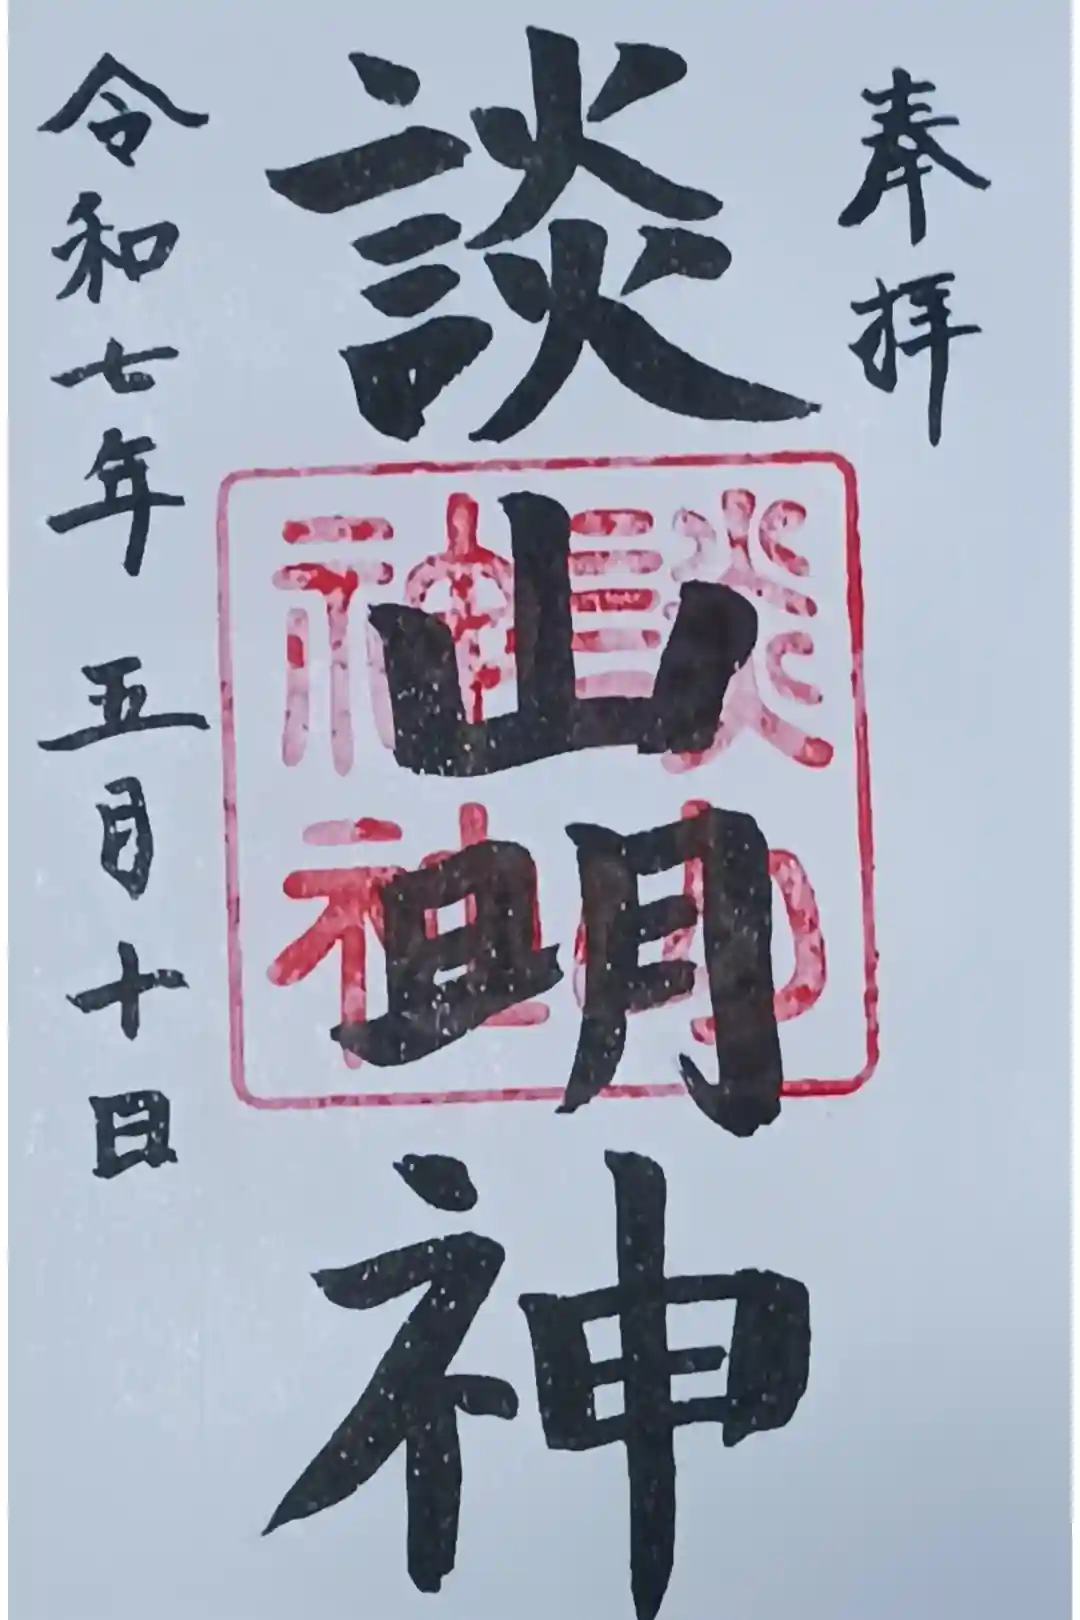 奉拝
談山明神
談山
神社
令和七年 五月十日